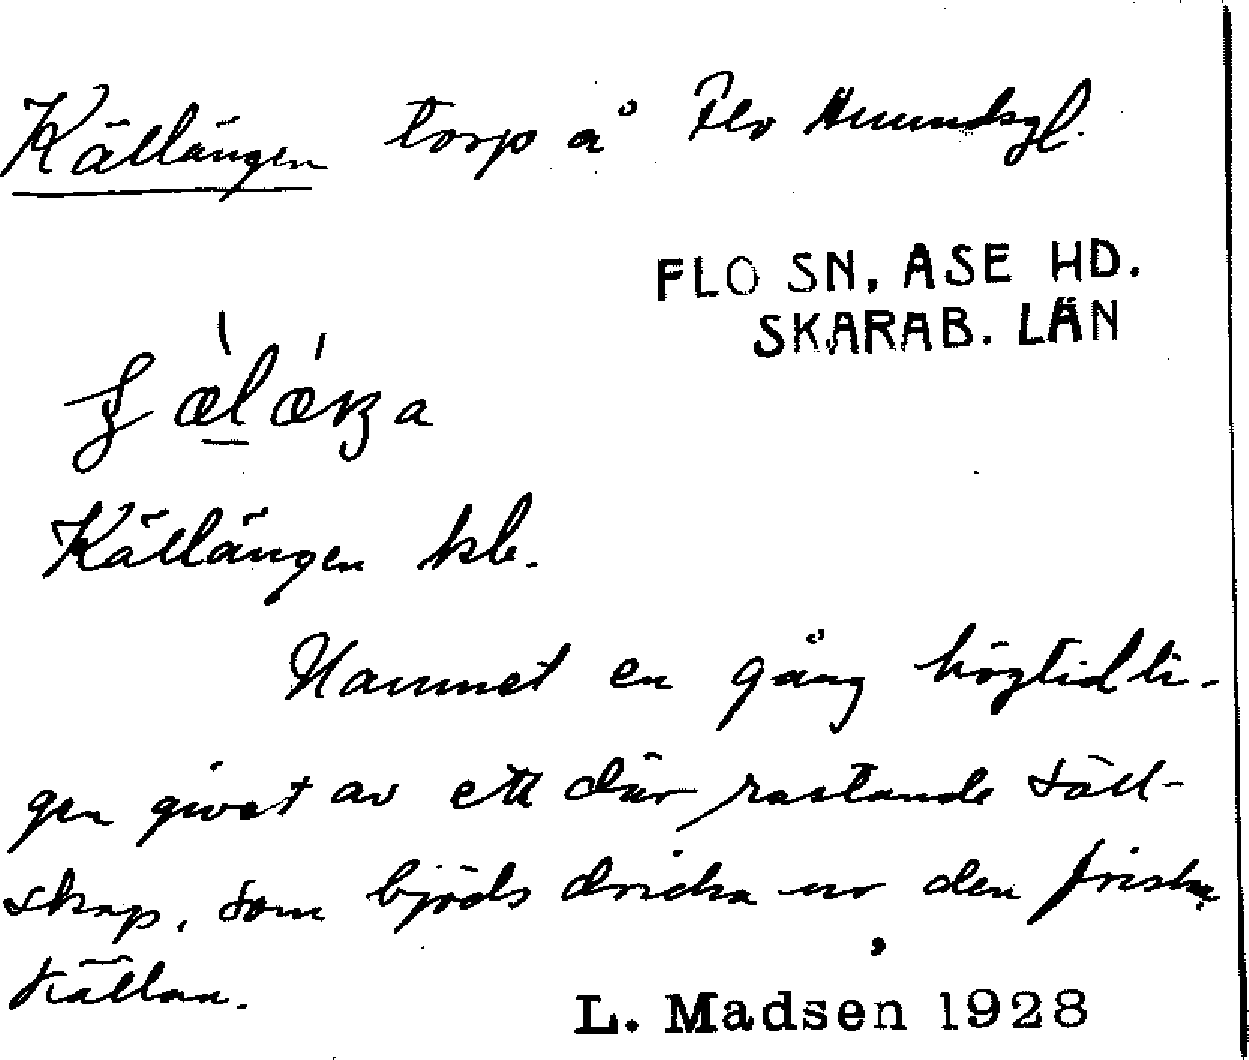 Källängen torp å Flo Annundsgl.
FLO SN, ASE HD.
SKARAB. LÄN
Källängen kb.
Namnet en gång högtidli-
gen givet av ett där rastande säll-
skap, som bjöds dricka ur den friska
källan.
L. Madsen 1928